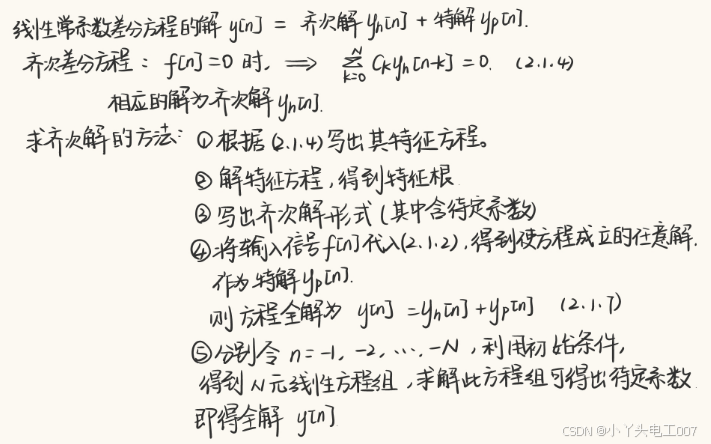 线性常系数差分方程的解 y[n] = 齐次解 yh[n] + 特解 yp[n].
齐次差分方程: f[n]=0 时, ⟹ ∑_{k=0}^{N} Ck yh[n-k] = 0. (2.1.4)
相应的解为齐次解 yh[n].
求齐次解的方法: ①根据(2.1.4)写出其特征方程。
②解特征方程,得到特征根
③写出齐次解形式(其中含待定系数)
④将输入信号f[n]代入(2.1.2),得到使方程成立的任意解.
作为特解yp[n].
则方程全解为 y[n] = yh[n] + yp[n] (2.1.7)
⑤分别令 n=-1, -2, ..., -N , 利用初始条件,
得到N元线性方程组,求解此方程组可得出待定系数
即得全解 y[n]
CSDN @小丫头电工007